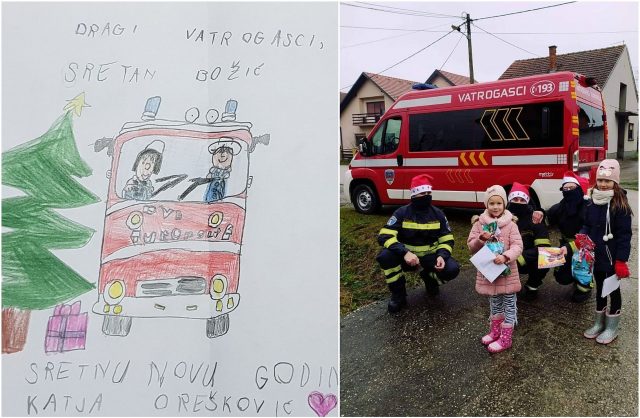 DRAGI VATROGASCI,
SRETAN BOŽIĆ
SRETNU NOVU GODIN
KATJA OREŠKOVIĆ
VATROGASCI 193